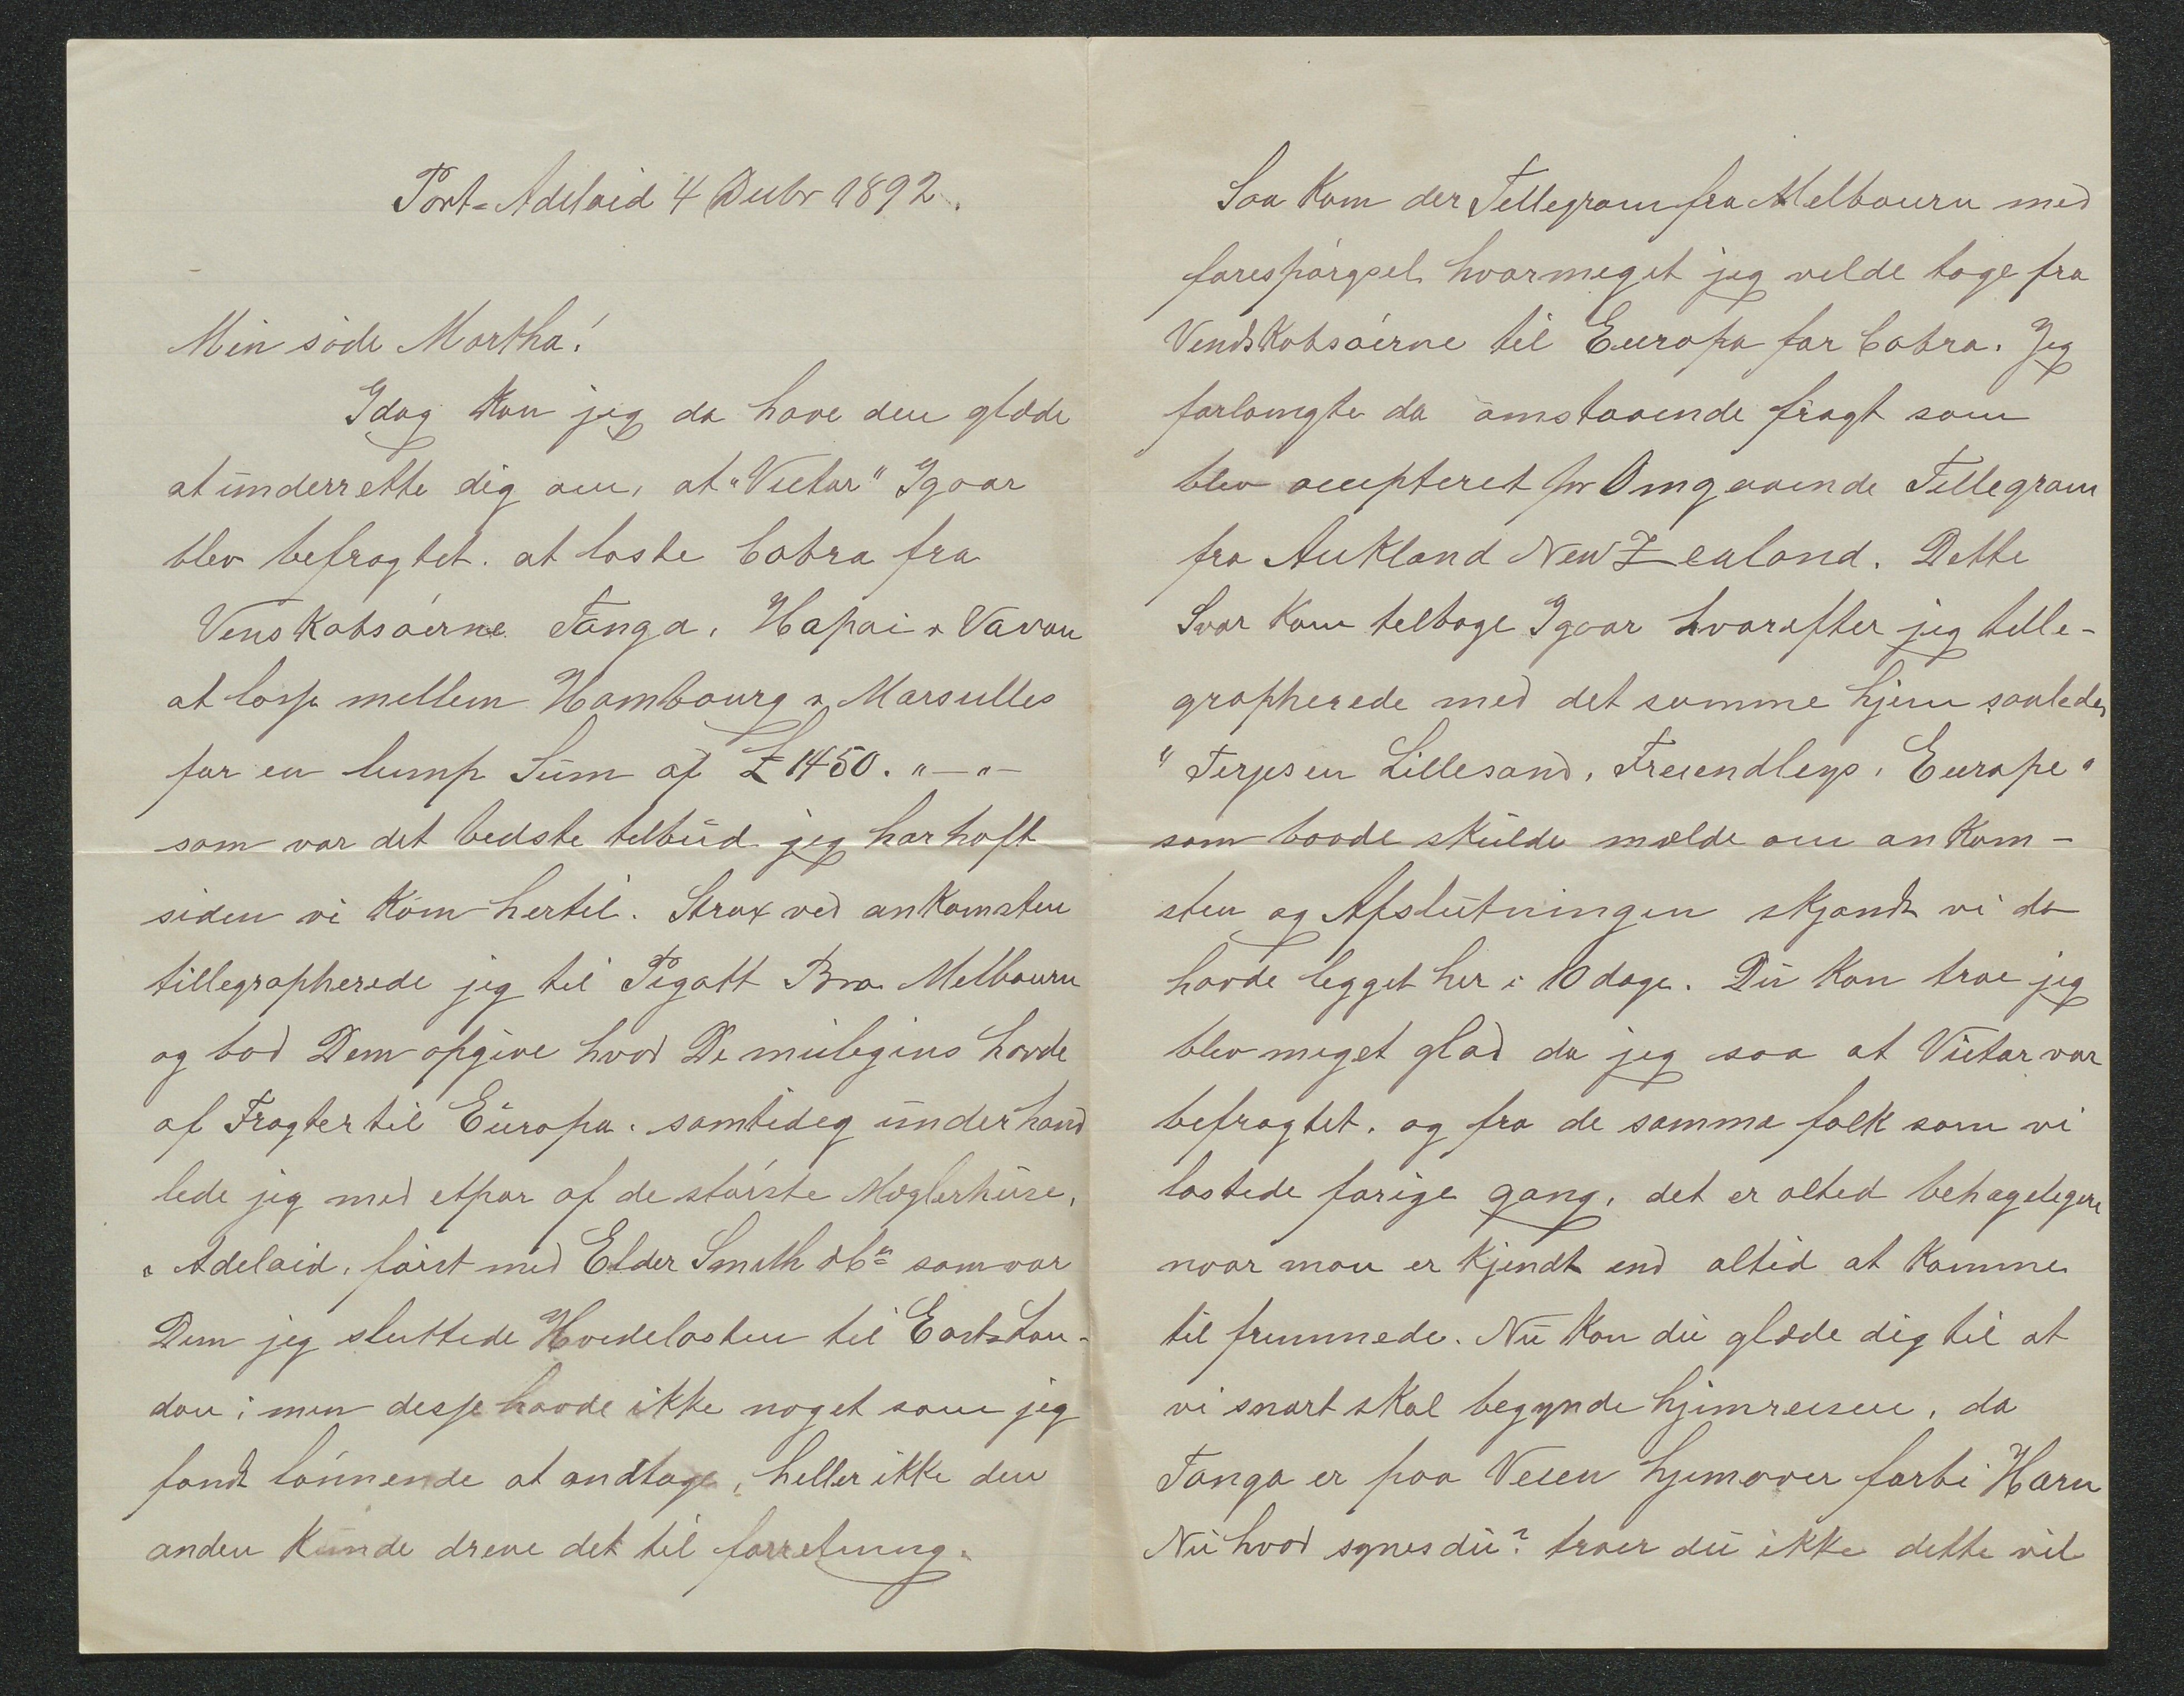 Port-Adelaid 4 Decbr 1892.
Min söde Martha!
Idag kan jeg da have den glæde
at underrette dig om, at "Victor" Igaar
blev befragtet. at laste Cobra fra
Venskabsöerne Tonga, Hapai & Vavau
at losse mellem Hambourg & Marseilles
for en lump Sum af £ 1450. "—"—
som var det bedste tilbud jeg har haft
siden vi kom hertil. Strax ved ankomsten
tillegrapherede jeg til Pigott Bro. Melbourn
og bad Dem opgive hvad De muligens havde
af Fragter til Europa. samtidig underhand
lede jeg med etpar af de störste Mæglerhuse,
i Adelaid, först med Elder Smith & Co som var
Dem jeg sluttede Hvedelasten til East-Lon-
don; men disse havde ikke noget som jeg
fandt lönnende at andtage, heller ikke den
anden kunde dreve det til forretning.
Saa kom der Tellegram fra Melbourn med
forespörgsel hvormeget jeg vilde tage fra
Vendskabsöerne til Europa for Cobra. Jeg
forlangte da omstaaende fragt som
blev accepteret pr Omgaaende Tellegram
fra Aukland New Zealand. Dette
Svar kom tilbage Igaar hvorefter jeg telle-
grapherede med det samme hjem saaledes
"Terjesen Lillesand, Freiendleys, Europe"
som baade skulde mælde om ankom-
sten og Afslutningen skjöndt vi da
havde legget her i 10 dage. Du kan troe jeg
blev meget glad da jeg saa at Victor var
befragtet. og fra de samme folk som vi
lastede forige gang, det er altid behageligere
naar man er kjendt end altid at komme
til fremmede. Nu kan du glæde dig til at
vi snart skal begynde hjemreisen, da
Tonga er paa Veien hjemover forbi Horn
Nu hvad synes du? troer du ikke dette vil